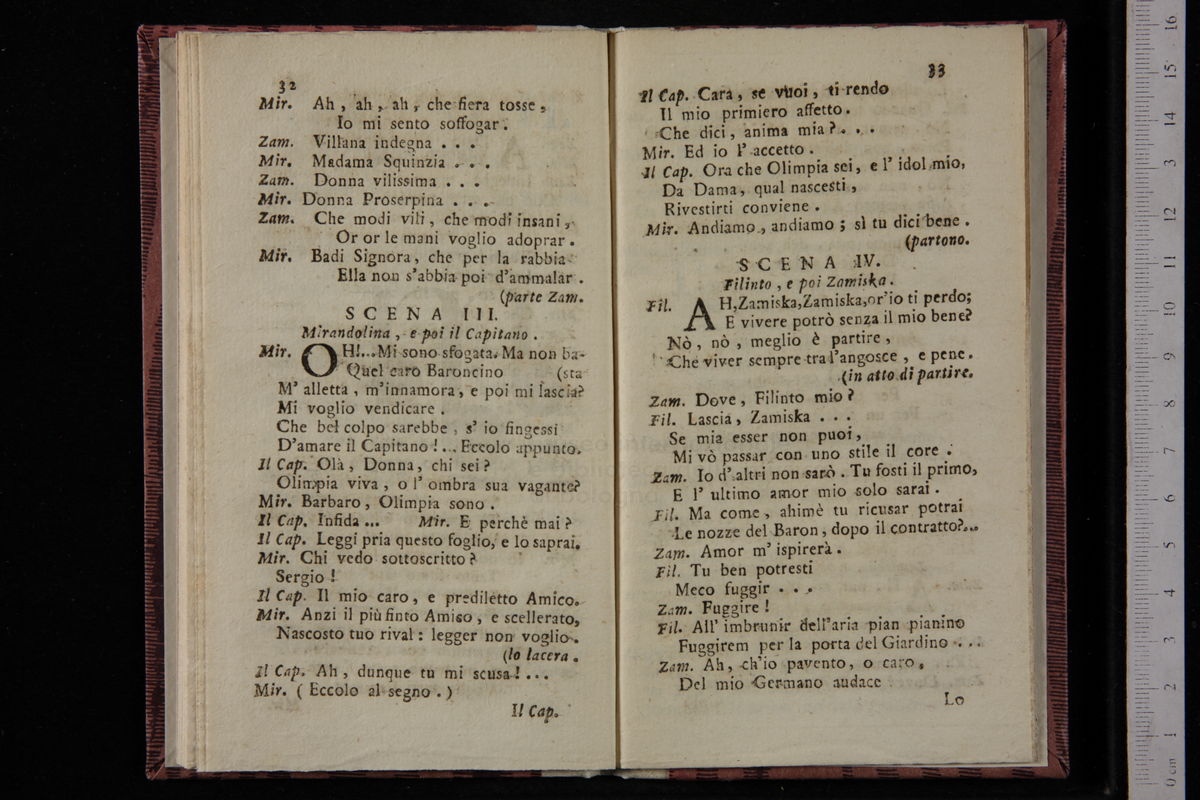 32
Mir. Ah, ah, ah, che fiera tosse,
Io mi sento soffogar.
Zam. Villana indegna . . .
Mir. Madama Squinzia . . .
Zam. Donna vilissima . . .
Mir. Donna Proserpina . . .
Zam. Che modi vili, che modi insani,
Or or le mani voglio adoprar.
Mir. Badi Signora, che per la rabbia
Ella non s'abbia poi d'ammalar.
(parte Zam.
SCENA III.
Mirandolina, e poi il Capitano.
Mir. OH!...Mi sono sfogata. Ma non ba-
Quel caro Baroncino (sta
M' alletta, m'innamora, e poi mi lascia?
Mi voglio vendicare.
Che bel colpo sarebbe, s' io fingessi
D'amare il Capitano!... Eccolo appunto.
Il Cap. Olà, Donna, chi sei?
Olimpia viva, o l' ombra sua vagante?
Mir. Barbaro, Olimpia sono.
Il Cap. Infida ... Mir. E perchè mai?
Il Cap. Leggi pria questo foglio, e lo saprai.
Mir. Chi vedo sottoscritto?
Sergio!
Il Cap. Il mio caro, e prediletto Amico.
Mir. Anzi il più finto Amico, e scellerato,
Nascosto tuo rival: legger non voglio.
(lo lacera.
Il Cap. Ah, dunque tu mi scusa!...
Mir. (Eccolo al segno.)
Il Cap.
33
Il Cap. Cara, se vuoi, ti rendo
Il mio primiero affetto.
Che dici, anima mia? . . .
Mir. Ed io l' accetto.
Il Cap. Ora che Olimpia sei, e l' idol mio,
Da Dama, qual nascesti,
Rivestirti conviene.
Mir. Andiamo, andiamo; sì tu dici bene.
(partono.
SCENA IV.
Filinto, e poi Zamiska.
Fil. AH, Zamiska, Zamiska, or'io ti perdo;
E vivere potrò senza il mio bene?
Nò, nò, meglio è partire,
Che viver sempre tra l'angosce, e pene.
(in atto di partire.
Zam. Dove, Filinto mio?
Fil. Lascia, Zamiska . . .
Se mia esser non puoi,
Mi vò passar con uno stile il core.
Zam. Io d' altri non sarò. Tu fosti il primo,
E l' ultimo amor mio solo sarai.
Fil. Ma come, ahimè tu ricusar potrai
Le nozze del Baron, dopo il contratto?...
Zam. Amor m' ispirerà.
Fil. Tu ben potresti
Meco fuggir . . .
Zam. Fuggire!
Fil. All' imbrunir dell'aria pian pianino
Fuggirem per la porta del Giardino . . .
Zam. Ah, ch'io pavento, o caro,
Del mio Germano audace
Lo
0 cm 1 2 3 4 5 6 7 8 9 10 11 12 13 14 15 16